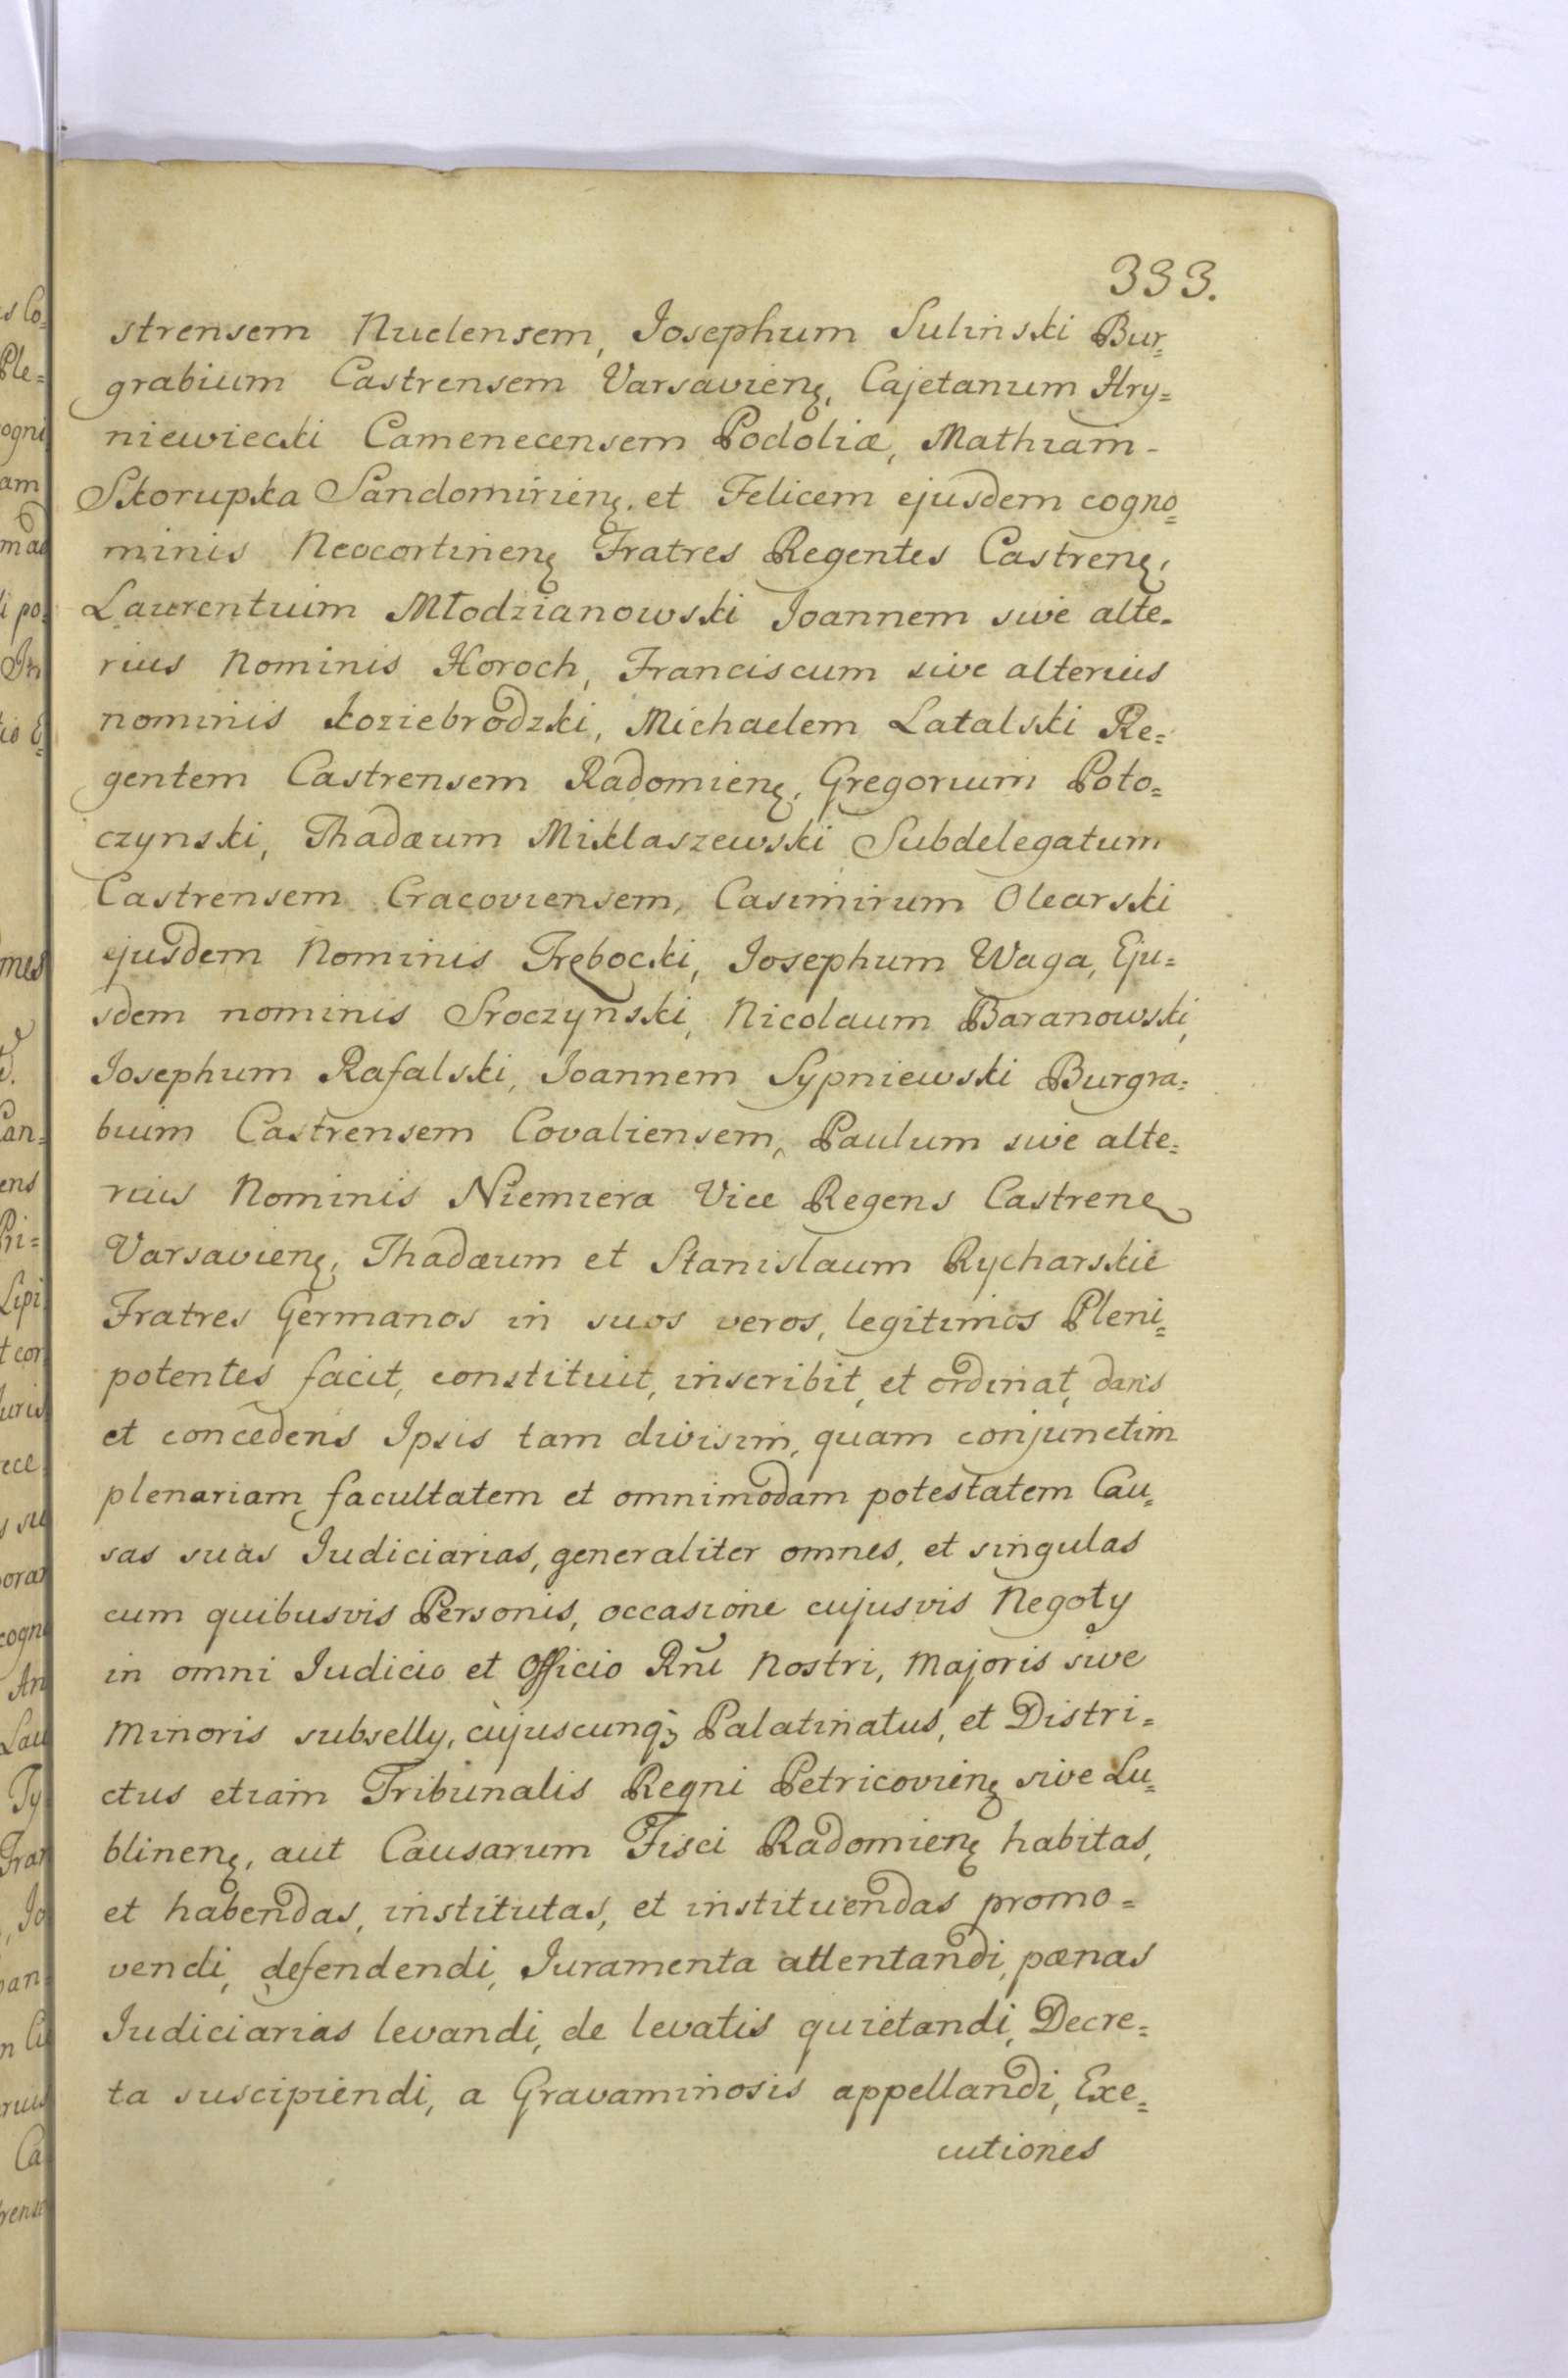 333.
strensem Nuclensem, Josephum Sulinski Bur=
grabium Castrensem Varsavieną, Cajetanum Hry=
niewiecki Camenecensem Podoliæ, Mathiam -
Skorupka Sandomirieną. et Felicem ejusdem cogno=
minis Neocortineną Fratres Regentes Castreną,
Laurentium Młodzianowski Joannem sive alte=
rius Nominis Horoch, Franciscum sive alterius
nominis Koziebrodzki, Michaelem Latalski Re=
gentem Castrensem Radomieną, Gregorium Poto=
czynski, Thadæum Miklaszewski Subdelegatum
Castrensem Cracoviensem, Casimirum Olearski
ejusdem Nominis Trębocki, Josephum Waga, Eju=
sdem nominis Sroczynski, Nicolaum Baranowski,
Josephum Rafalski, Joannem Sypniewski Burgra=
bium Castrensem Covaliensem, Paulum sive alte=
rius Nominis Niemiera Vice Regens Castreną
Varsavieną, Thadæum et Stanislaum Rycharskie
Fratres Germanos in suos veros, legitimos Pleni=
potentes facit, constituit, inscribit, et ordinat, dans
et concedens Ipsis tam divisim, quam conjunctim
plenariam facultatem et omnimodam potestatem Cau=
sas suas Judiciarias, generaliter omnes, et singulas
cum quibusvis Personis, occasione cujusvis Negoty
in omni Judicio et Officio Rñi Nostri, Majoris sive
Minoris subselly, cujuscunq; Palatinatus, et Distri=
ctus etiam Tribunalis Regni Petricovieną sive Lu=
blineną, aut Causarum Fisci Radomieną habitas,
et habendas, institutas, et instituendas promo=
vendi, defendendi, Juramenta attentandi, pænas
Judiciarias levandi, de levatis quietandi, Decre=
ta suscipiendi, a Gravaminosis appellandi, Exe=
cutiones